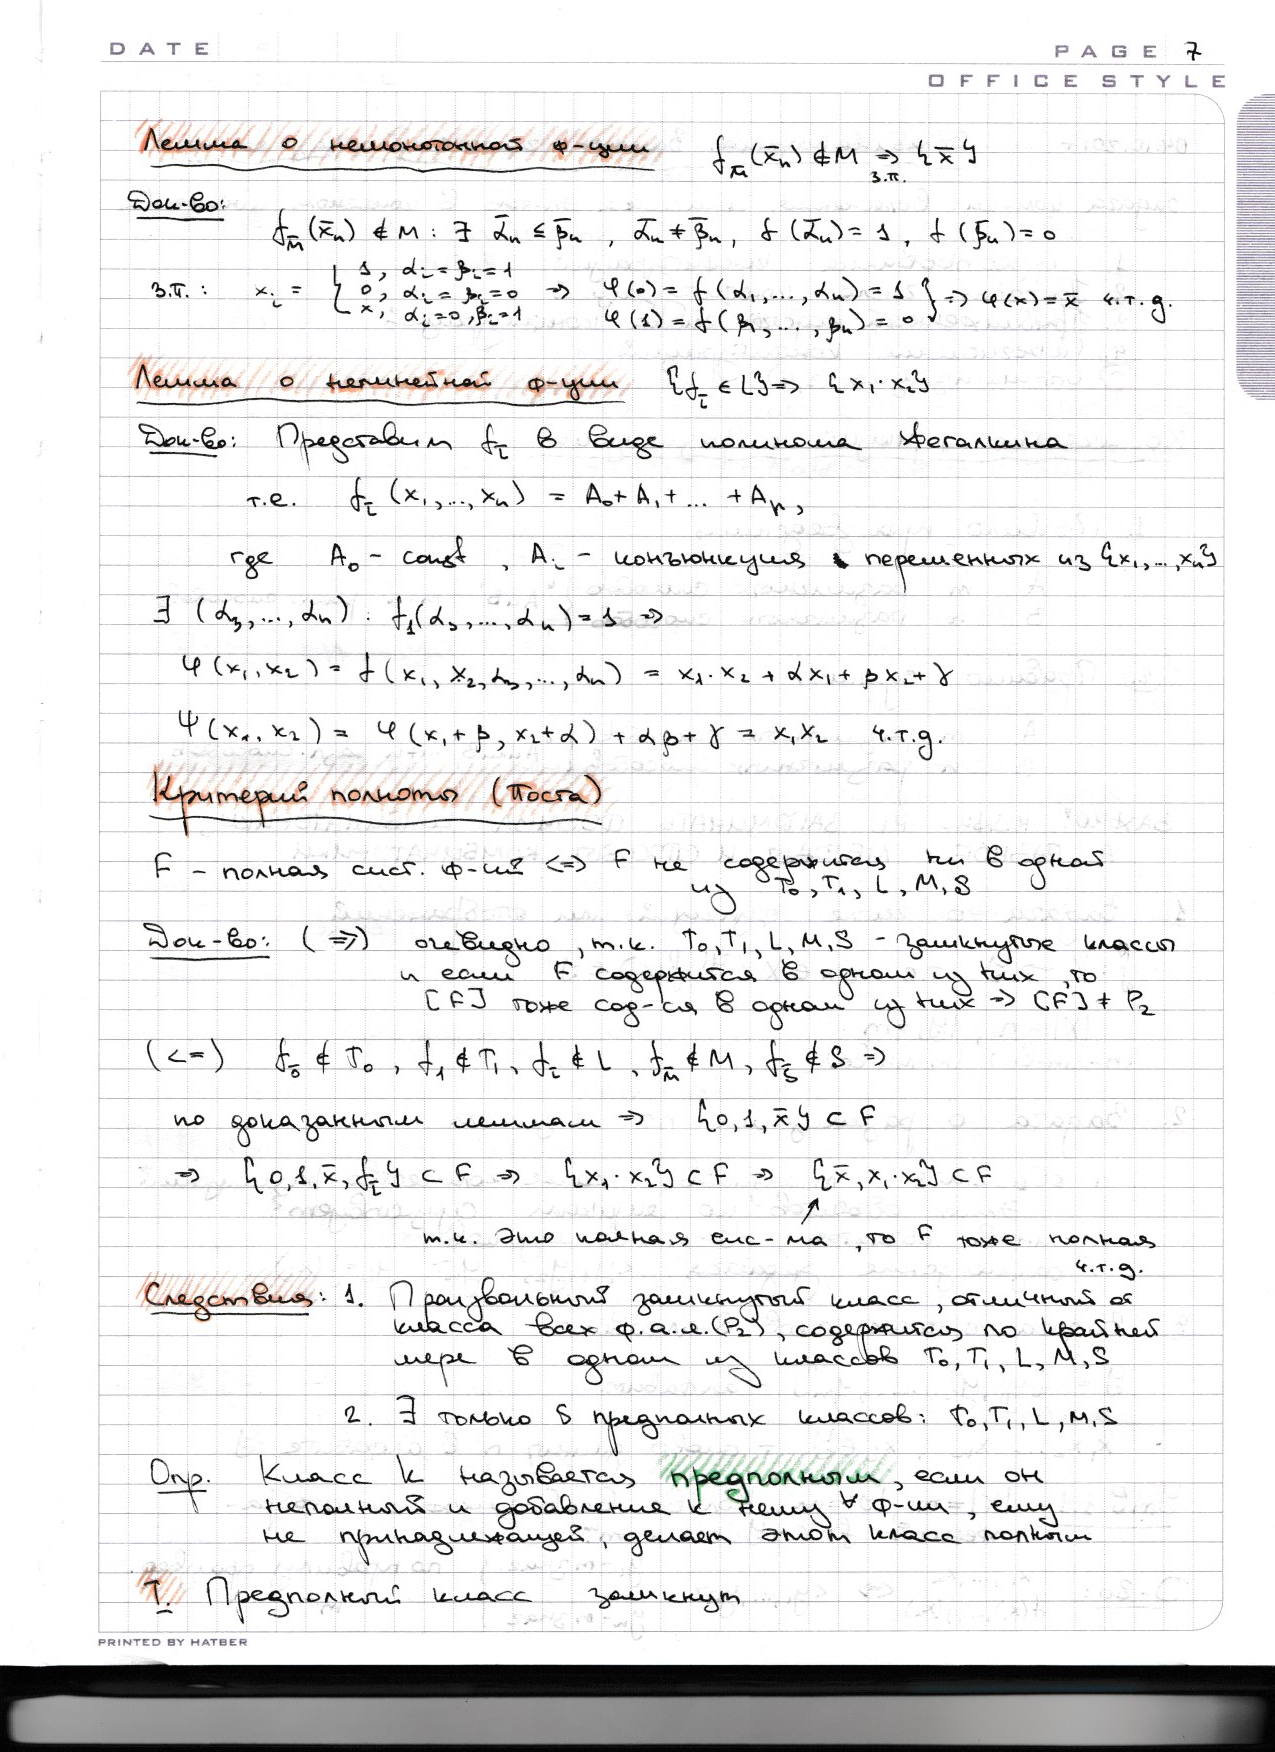 DATE PAGE 7
OFFICE STYLE
Лемма о немонотонной ф-ции f_M̄(x̄ₙ) ∉ M ⇒ {x̄}
з.п.
Док-во:
f_M̄(x̄ₙ) ∉ M : ∃ ᾱₙ ≤ β̄ₙ , ᾱₙ ≠ β̄ₙ, f(ᾱₙ) = 1, f(β̄ₙ) = 0
з.п.: xᵢ = { 1, αᵢ = βᵢ = 1
0, αᵢ = βᵢ = 0 ⇒ φ(0) = f(α₁,...,αₙ) = 1
x, αᵢ = 0, βᵢ = 1 φ(1) = f(β₁,...,βₙ) = 0 } ⇒ φ(x) = x̄ ч.т.д.
Лемма о нелинейной ф-ции {f_L̄ ∈ L} ⇒ {x₁·x₂}
Док-во: Представим f_L̄ в виде полинома Жегалкина
т.е. f_L̄(x₁,...,xₙ) = A₀ + A₁ + ... + Aₖ,
где A₀ - const, Aᵢ - конъюнкция переменных из {x₁,...,xₙ}
∃ (α₃,...,αₙ) : f₁(α₃,...,αₙ) = 1 ⇒
φ(x₁,x₂) = f(x₁,x₂,α₃,...,αₙ) = x₁·x₂ + αx₁ + βx₂ + γ
ψ(x₁,x₂) = φ(x₁+β, x₂+α) + αβ + γ = x₁x₂ ч.т.д.
Критерий полноты (Поста)
F - полная сист. ф-ий <=> F не содержится ни в одной
из T₀, T₁, L, M, S
Док-во: (⇒) очевидно, т.к. T₀, T₁, L, M, S - замкнутые классы
и если F содержится в одном из них, то
[F] тоже сод-ся в одном из них ⇒ [F] ≠ P₂
(<=) f₀̄ ∉ T₀, f₁̄ ∉ T₁, f_L̄ ∉ L, f_M̄ ∉ M, f_S̄ ∉ S ⇒
по доказанным леммам ⇒ {0,1,x̄} ⊂ F
⇒ {0,1,x̄,f_L̄} ⊂ F ⇒ {x₁·x₂} ⊂ F ⇒ {x̄,x₁·x₂} ⊂ F
т.к. это полная сис-ма, то F тоже полная
ч.т.д.
Следствия: 1. Произвольный замкнутый класс, отличный от
класса всех ф.а.л.(P₂), содержится по крайней
мере в одном из классов T₀, T₁, L, M, S
2. ∃ только 5 предполных классов: T₀, T₁, L, M, S
Опр. Класс K называется предполным, если он
неполный и добавление к нему ∀ ф-ии, ему
не принадлежащей, делает этот класс полным
T. Предполный класс замкнут
PRINTED BY HATBER